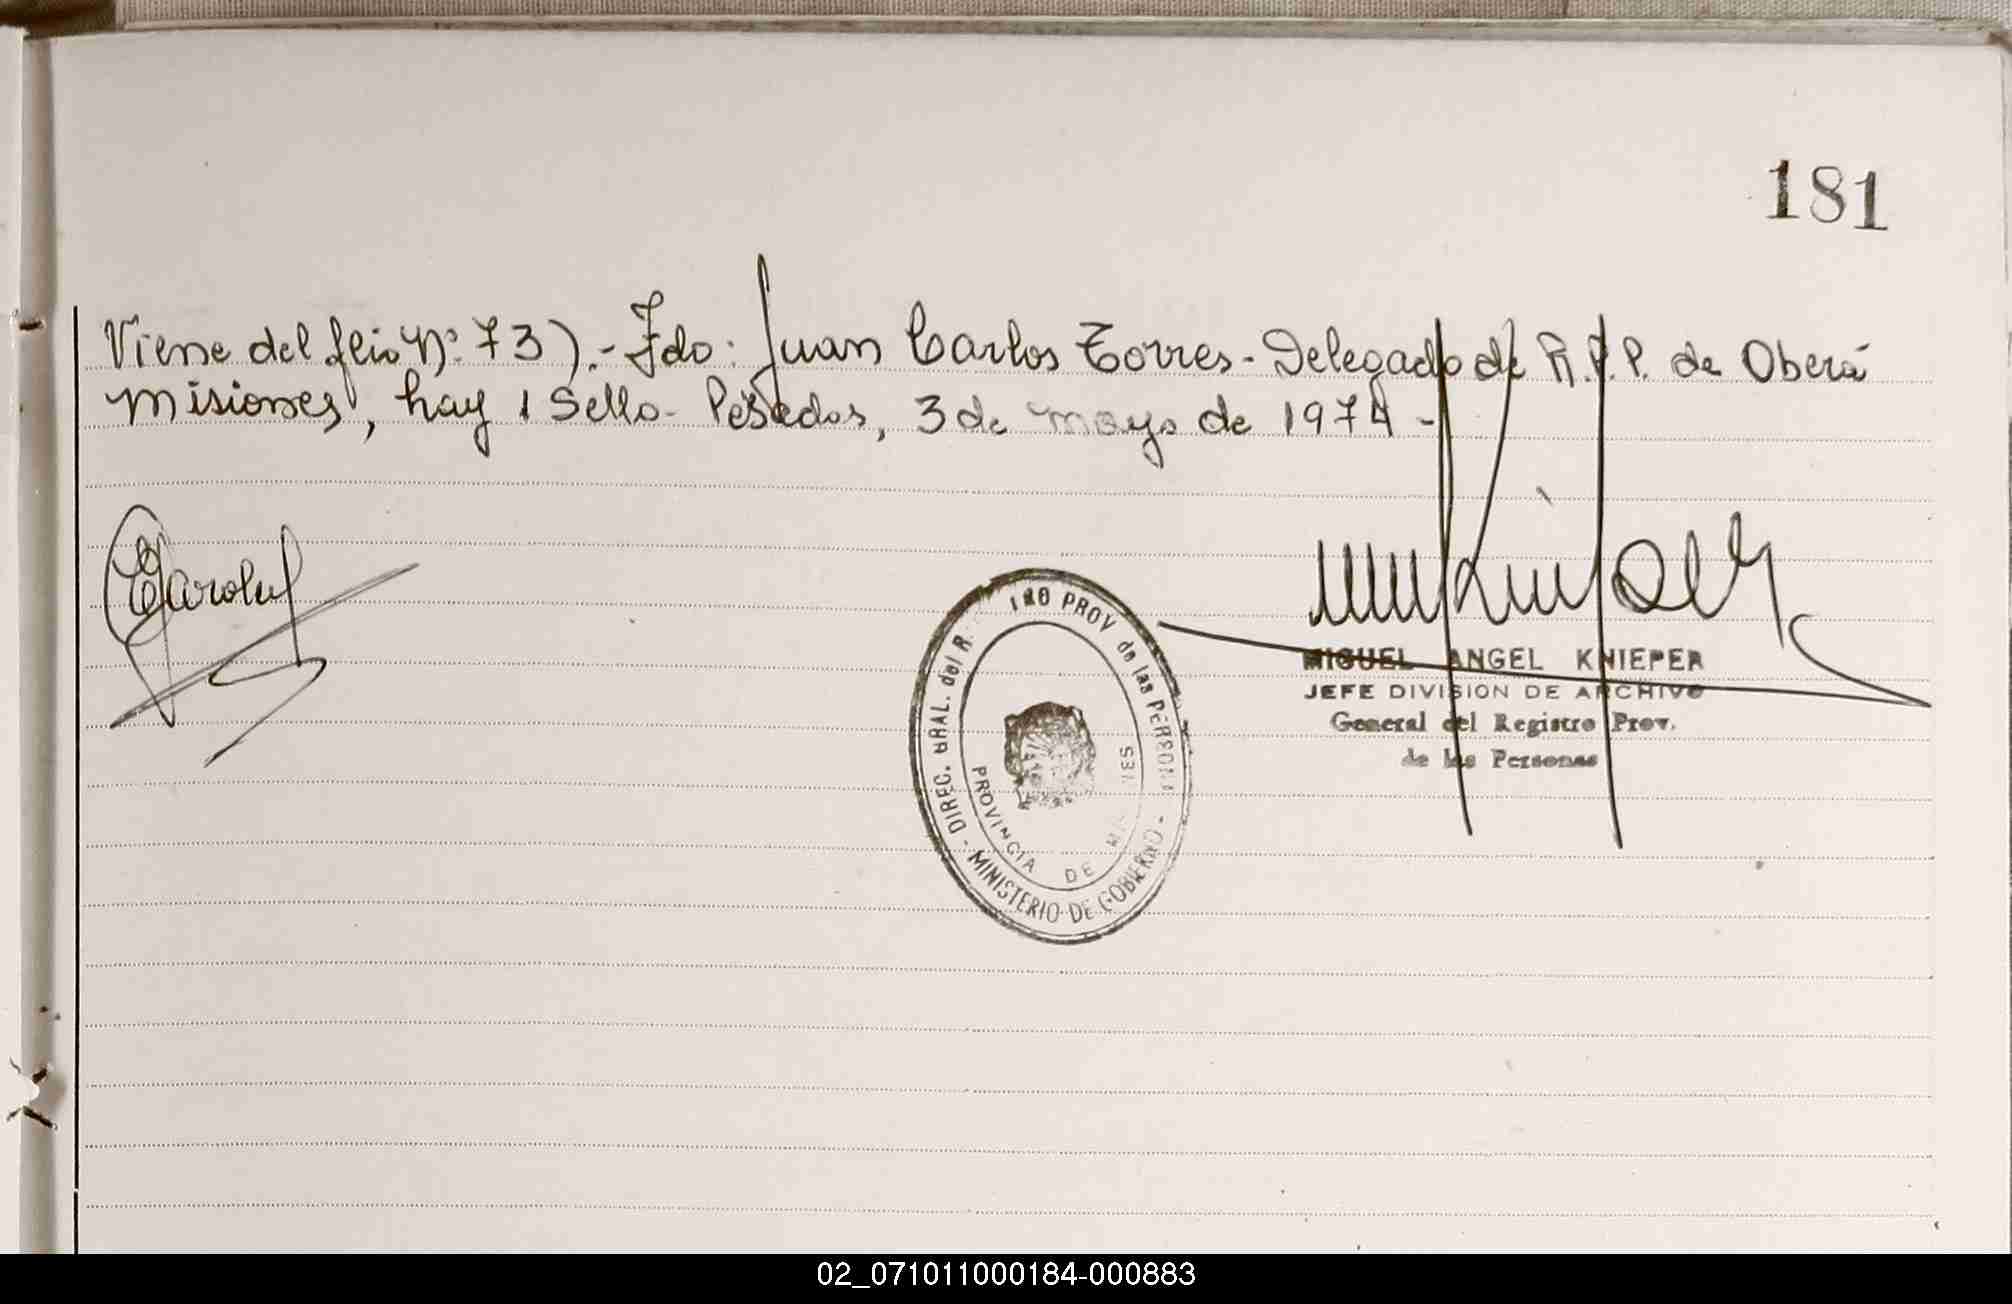 181
Viene del flio Nº. 73).- Fdo: Juan Carlos Torres - Delegado de R.P.P. de Oberá
misiones, hay 1 Sello - Posadas, 3 de mayo de 1974 -
MIGUEL ANGEL KNIEPER
JEFE DIVISION DE ARCHIVO
General del Registro Prov.
de las Personas
DIREC. GRAL. del R PROV de las PERSONA
- MINISTERIO DE GOBIERNO -
PROVINCIA DE
02_071011000184-000883